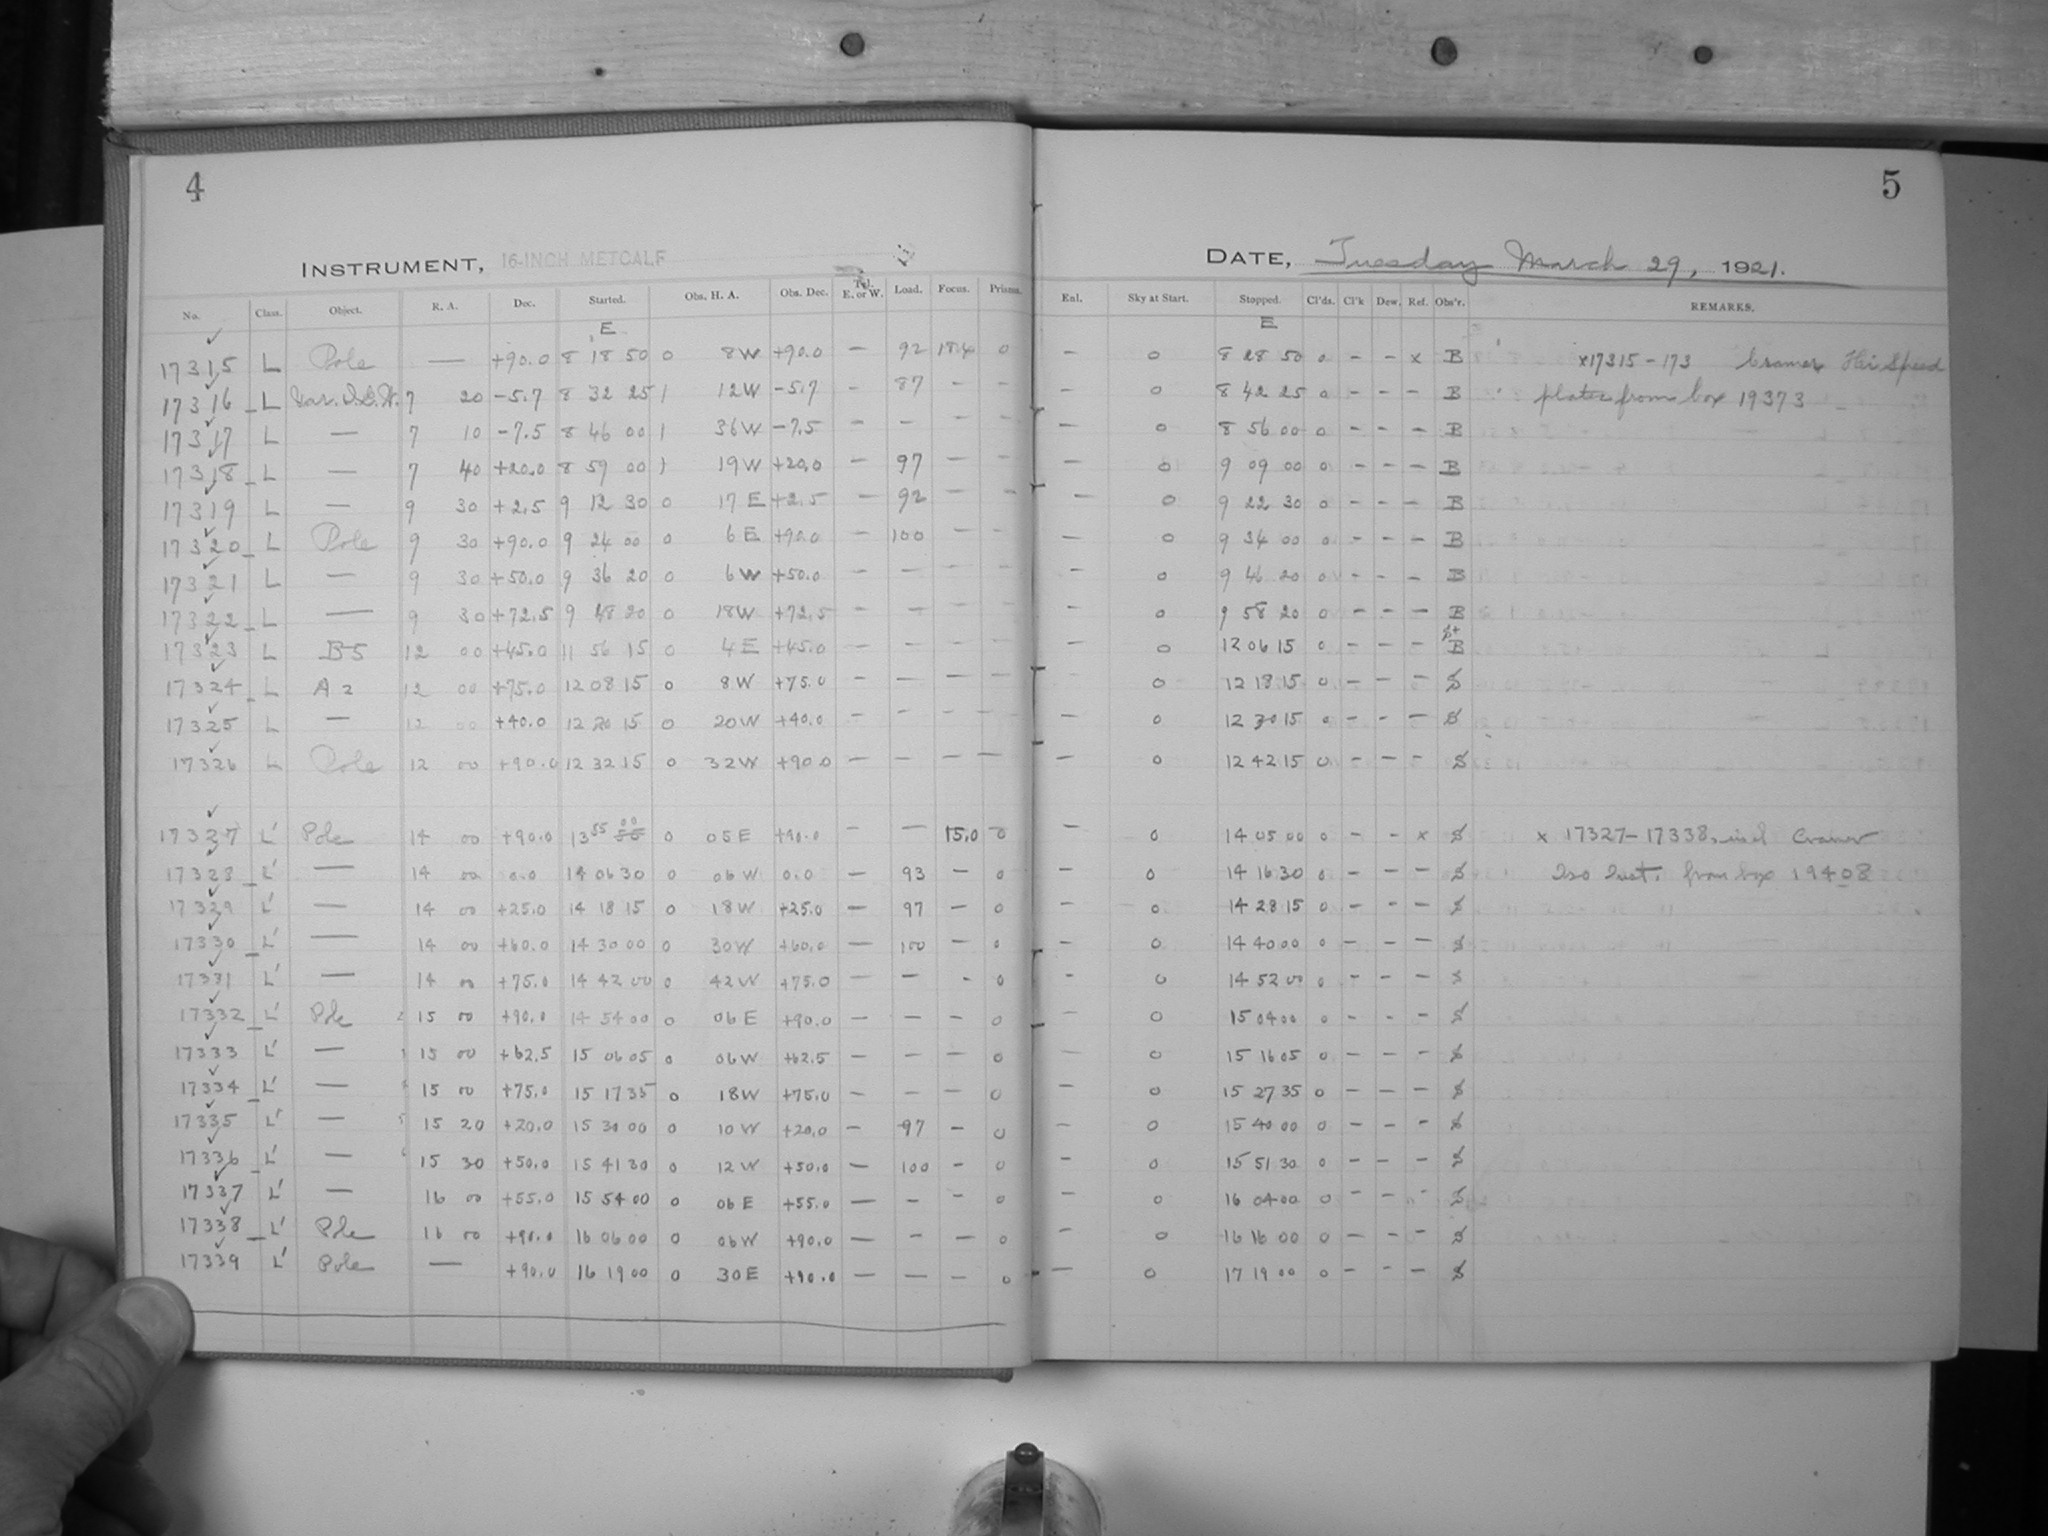 4
INSTRUMENT, 16-INCH METCALF
No. Class. Object. R. A. Dec. Started. Obs. H. A. Obs. Dec. Tel. E. or W. Load. Focus. Prisms.
E
17315 L Pole — +90.0 8 18 50 0 8W +90.0 — 92 18.4 0
17316 L Var. 7 20 -5.7 8 32 25 1 12W -5.7 - 87 - -
17317 L — 7 10 -7.5 8 46 00 1 36W -7.5 - - - -
17318 L — 7 40 +20.0 8 59 00 1 19W +20.0 - 97 - -
17319 L — 9 30 +2.5 9 12 30 0 17 E +2.5 — 92 - -
17320 L Pole 9 30 +90.0 9 24 00 0 6 E +90.0 - 100 - -
17321 L — 9 30 +50.0 9 36 20 0 6W +50.0 - - - -
17322 L — 9 30 +72.5 9 48 20 0 18W +72.5 - - - -
17323 L B5 12 00 +45.0 11 56 15 0 4 E +45.0 - - - -
17324 L A 2 12 00 +75.0 12 08 15 0 8W +75.0 - - - -
17325 L — 12 00 +40.0 12 20 15 0 20W +40.0 - - - -
17326 L Pole 12 00 +90.0 12 32 15 0 32W +90.0 - - - -
17327 L' Pole 14 00 +90.0 13 55 00 0 05 E +90.0 - — 15.0 0
17328 L' — 14 00 0.0 14 06 30 0 06 W 0.0 - 93 - 0
17329 L' — 14 00 +25.0 14 18 15 0 18W +25.0 - 97 - 0
17330 L' — 14 00 +60.0 14 30 00 0 30W +60.0 - 100 - 0
17331 L' — 14 00 +75.0 14 42 00 0 42W +75.0 - - - 0
17332 L' Pole 15 00 +90.0 14 54 00 0 06 E +90.0 - - - 0
17333 L' — 15 00 +62.5 15 06 05 0 06W +62.5 - - - 0
17334 L' — 15 00 +75.0 15 17 35 0 18W +75.0 - - - 0
17335 L' — 15 20 +20.0 15 30 00 0 10 W +20.0 - 97 - 0
17336 L' — 15 30 +50.0 15 41 30 0 12W +50.0 - 100 - 0
17337 L' — 16 00 +55.0 15 54 00 0 06 E +55.0 - - - 0
17338 L' Pole 16 00 +90.0 16 06 00 0 06W +90.0 - - - 0
17339 L' Pole — +90.0 16 19 00 0 30 E +90.0 - - - 0
5
DATE, Tuesday March 29, 1921.
Enl. Sky at Start. Stopped. Cl'ds. Cl'k Dew. Ref. Obs'r. REMARKS.
E
- 0 8 28 50 0 - - x B x17315-173 Cramer Hi Speed
- 0 8 42 25 0 - - - B plates from box 19373
- 0 8 56 00 0 - - - B
- 0 9 09 00 0 - - - B
- 0 9 22 30 0 - - - B
- 0 9 34 00 0 - - - B
- 0 9 46 20 0 - - - B
- 0 9 58 20 0 - - - B
- 0 12 06 15 0 - - - S+B
- 0 12 18 15 0 - - - S
- 0 12 30 15 0 - - - S
- 0 12 42 15 0 - - - S
- 0 14 05 00 0 - - x S x 17327-17338, incl Cramer
- 0 14 16 30 0 - - - S Iso Inst. from box 19408
- 0 14 28 15 0 - - - S
- 0 14 40 00 0 - - - S
- 0 14 52 00 0 - - - S
- 0 15 04 00 0 - - - S
- 0 15 16 05 0 - - - S
- 0 15 27 35 0 - - - S
- 0 15 40 00 0 - - - S
- 0 15 51 30 0 - - - S
- 0 16 04 00 0 - - - S
- 0 16 16 00 0 - - - S
- 0 17 19 00 0 - - - S